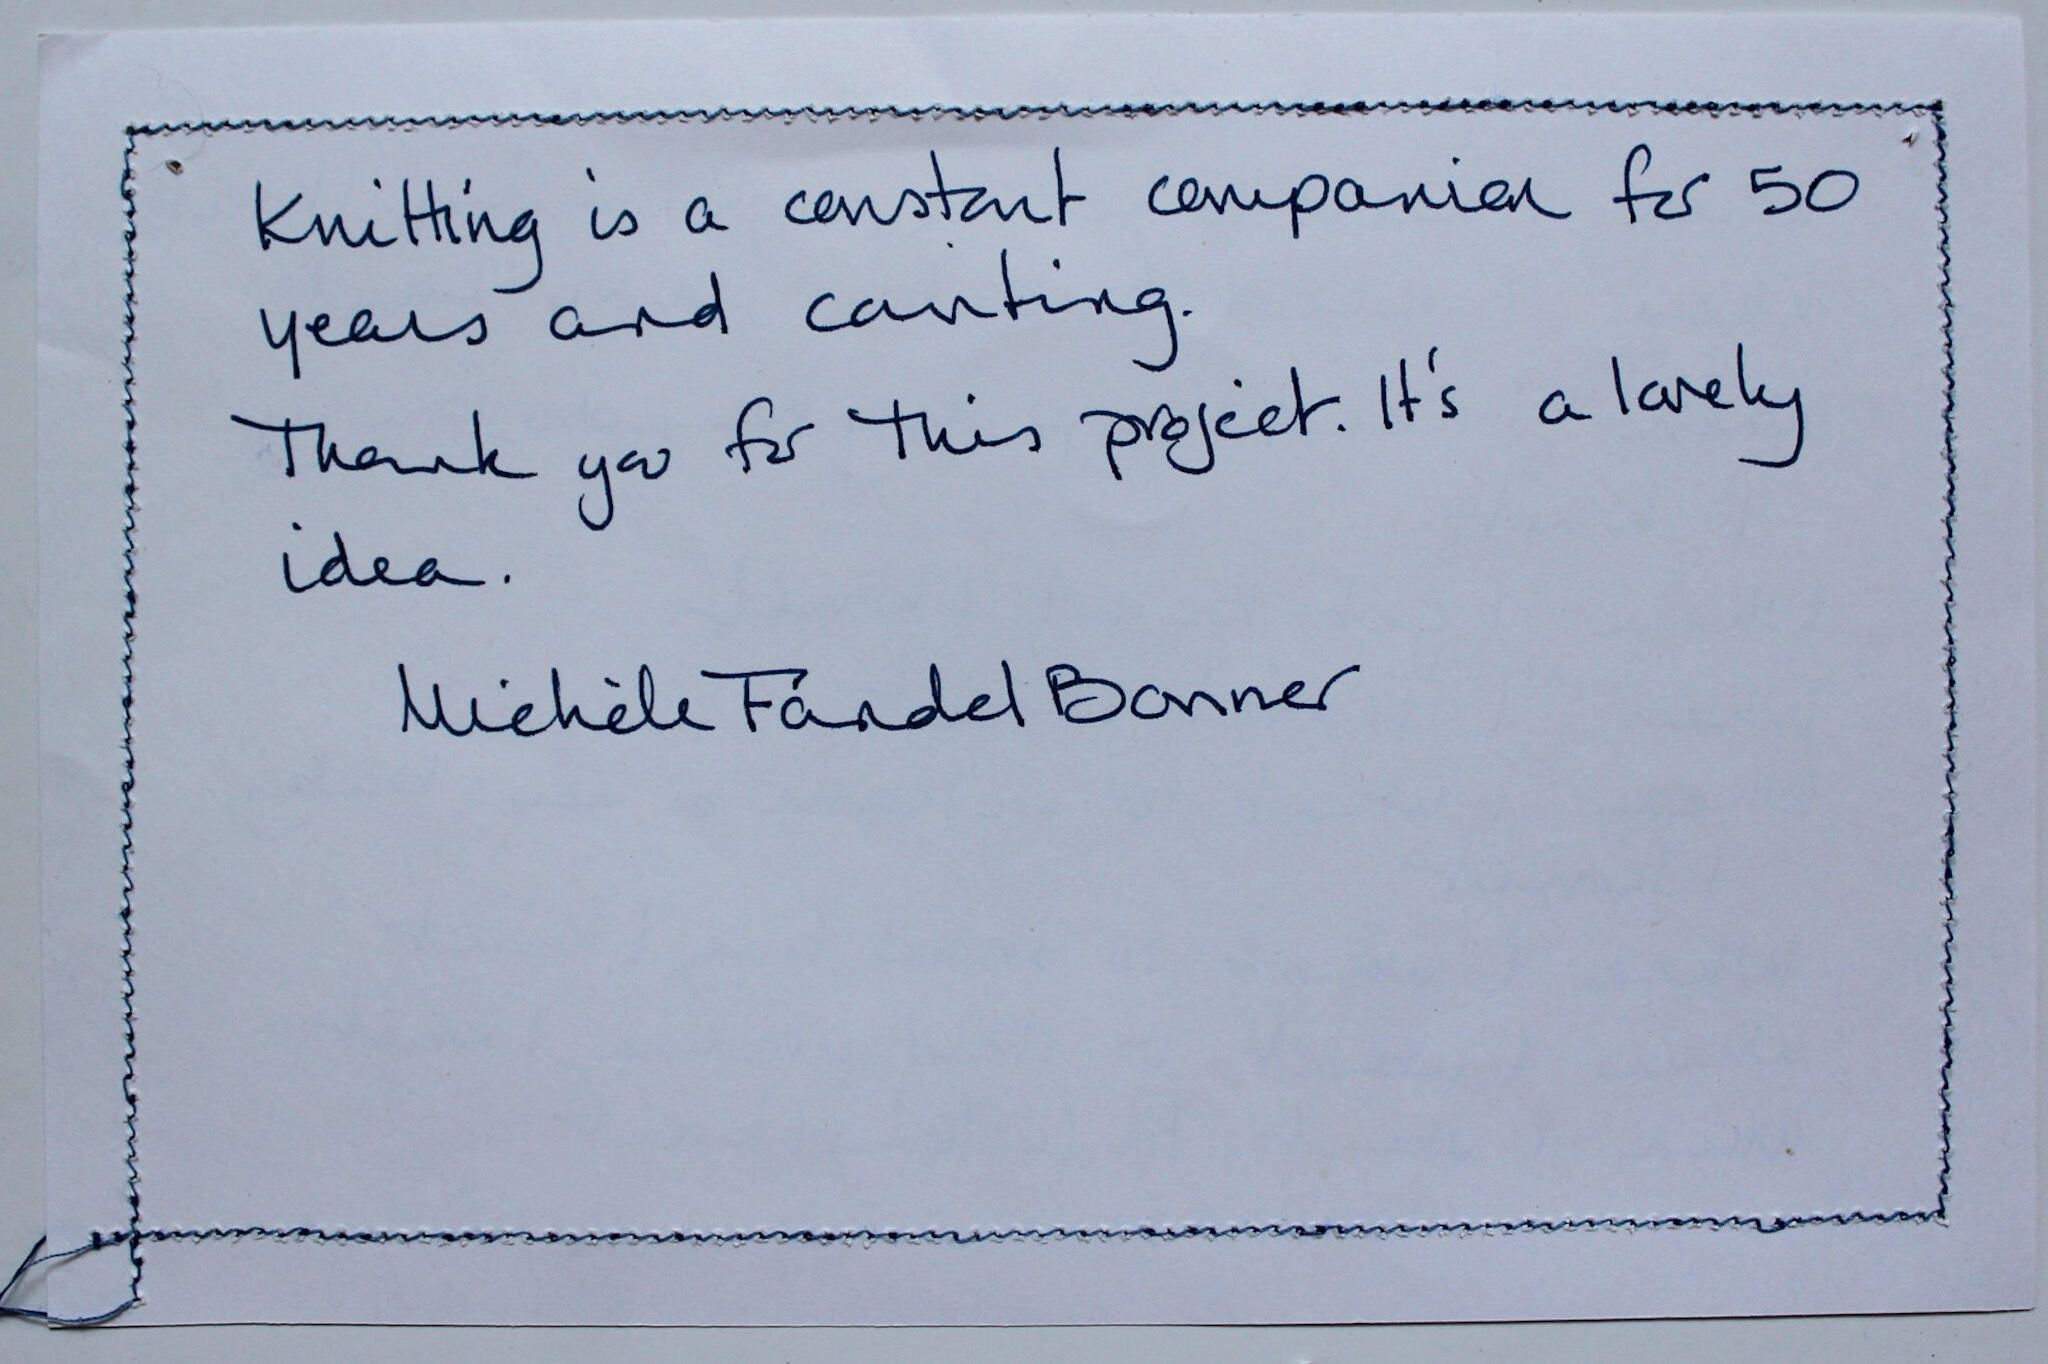 Knitting is a constant companion for 50
years and counting.
Thank you for this project. It's a lovely
idea.
Michèle Fandel Bonner